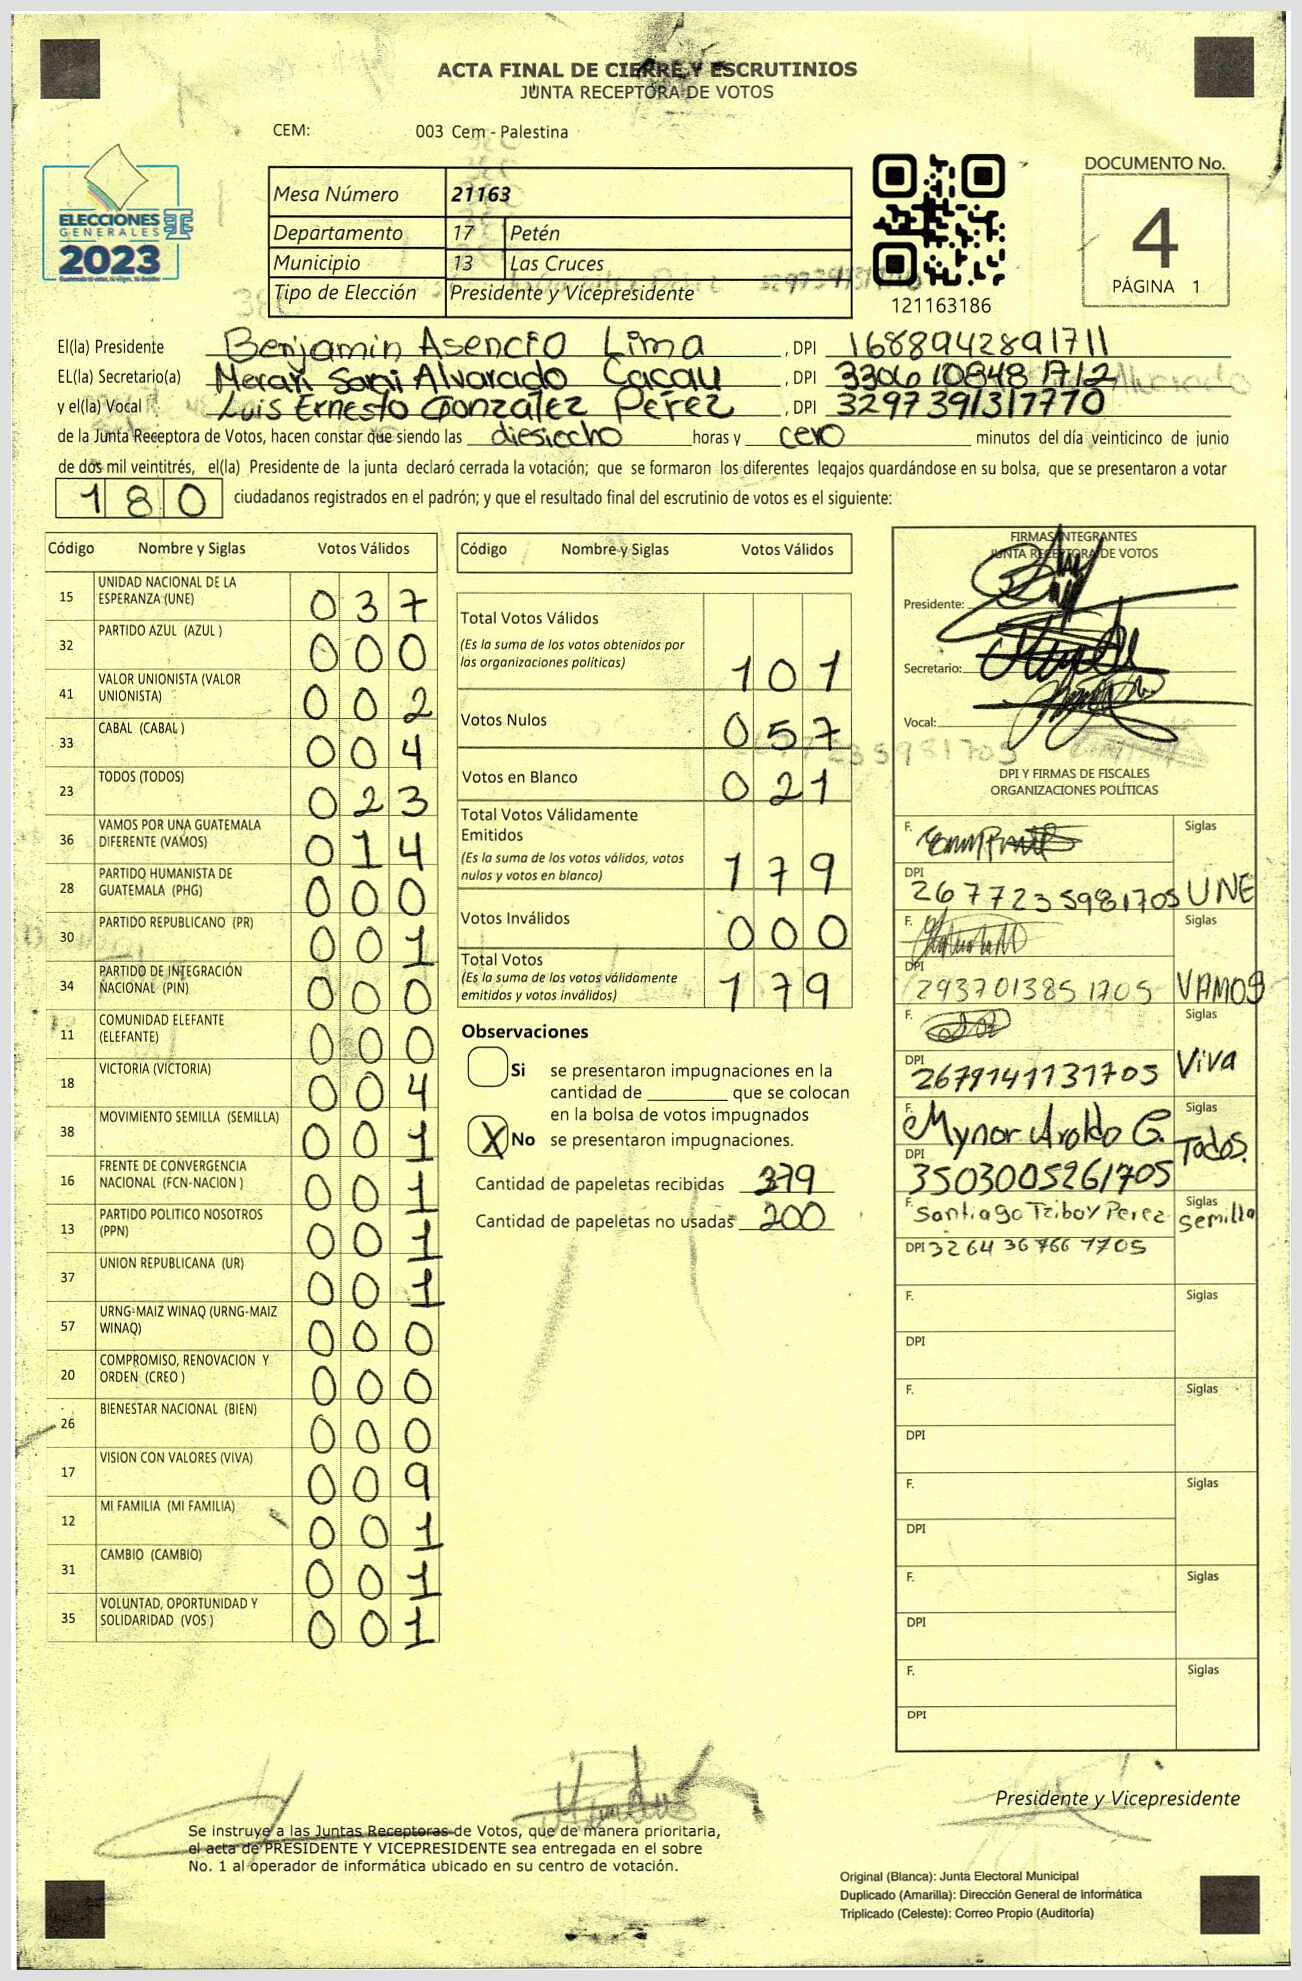 ACTA FINAL DE CIERRE Y ESCRUTINIOS
JUNTA RECEPTORA DE VOTOS
CEM: 003 Cem - Palestina
ELECCIONES
GENERALES
2023
Mesa Número 21163
Departamento 17 Petén
Municipio 13 Las Cruces
Tipo de Elección Presidente y Vicepresidente
121163186
DOCUMENTO No.
4
PÁGINA 1
El(la) Presidente Benjamin Asencio Lima , DPI 1688942891711
EL(la) Secretario(a) Merari Sarai Alvarado Cacau , DPI 3306108481712
y el(la) Vocal Luis Ernesto Gonzalez Perez , DPI 3297391317710
de la Junta Receptora de Votos, hacen constar que siendo las diesiecho horas y cero minutos del día veinticinco de junio
de dos mil veintitrés, el(la) Presidente de la junta declaró cerrada la votación; que se formaron los diferentes legajos guardándose en su bolsa, que se presentaron a votar
180 ciudadanos registrados en el padrón; y que el resultado final del escrutinio de votos es el siguiente:
Código Nombre y Siglas Votos Válidos
15 UNIDAD NACIONAL DE LA ESPERANZA (UNE) 037
32 PARTIDO AZUL (AZUL ) 000
41 VALOR UNIONISTA (VALOR UNIONISTA) 002
33 CABAL (CABAL ) 004
23 TODOS (TODOS) 023
36 VAMOS POR UNA GUATEMALA DIFERENTE (VAMOS) 014
28 PARTIDO HUMANISTA DE GUATEMALA (PHG) 000
30 PARTIDO REPUBLICANO (PR) 001
34 PARTIDO DE INTEGRACIÓN NACIONAL (PIN) 000
11 COMUNIDAD ELEFANTE (ELEFANTE) 000
18 VICTORIA (VICTORIA) 004
38 MOVIMIENTO SEMILLA (SEMILLA) 001
16 FRENTE DE CONVERGENCIA NACIONAL (FCN-NACION ) 001
13 PARTIDO POLITICO NOSOTROS (PPN) 001
37 UNION REPUBLICANA (UR) 001
57 URNG-MAIZ WINAQ (URNG-MAIZ WINAQ) 000
20 COMPROMISO, RENOVACION Y ORDEN (CREO ) 000
26 BIENESTAR NACIONAL (BIEN) 000
17 VISION CON VALORES (VIVA) 009
12 MI FAMILIA (MI FAMILIA) 001
31 CAMBIO (CAMBIO) 001
35 VOLUNTAD, OPORTUNIDAD Y SOLIDARIDAD (VOS ) 001
Código Nombre y Siglas Votos Válidos
Total Votos Válidos
(Es la suma de los votos obtenidos por
las organizaciones políticas) 101
Votos Nulos 057
Votos en Blanco 021
Total Votos Válidamente
Emitidos
(Es la suma de los votos válidos, votos
nulos y votos en blanco) 179
Votos Inválidos 000
Total Votos
(Es la suma de los votos válidamente
emitidos y votos inválidos) 179
Observaciones
Si se presentaron impugnaciones en la
cantidad de ________ que se colocan
en la bolsa de votos impugnados
X No se presentaron impugnaciones.
Cantidad de papeletas recibidas 379
Cantidad de papeletas no usadas 200
FIRMAS INTEGRANTES
JUNTA RECEPTORA DE VOTOS
Presidente:
Secretario:
Vocal:
DPI Y FIRMAS DE FISCALES
ORGANIZACIONES POLÍTICAS
F. Siglas
DPI 2677235981705 UNE
F. Siglas
DPI 2937013851705 VAMOS
F. Siglas
DPI 2679141131705 Viva
F. Mynor Aroldo G. Siglas
DPI 3503005261705 Todos.
F. Santiago Tziboy Perez Siglas Semilla
DPI 3264367661705
F. Siglas
DPI
F. Siglas
DPI
F. Siglas
DPI
F. Siglas
DPI
F. Siglas
DPI
Presidente y Vicepresidente
Se instruye a las Juntas Receptoras de Votos, que de manera prioritaria,
el acta de PRESIDENTE Y VICEPRESIDENTE sea entregada en el sobre
No. 1 al operador de informática ubicado en su centro de votación.
Original (Blanca): Junta Electoral Municipal
Duplicado (Amarilla): Dirección General de Informática
Triplicado (Celeste): Correo Propio (Auditoría)